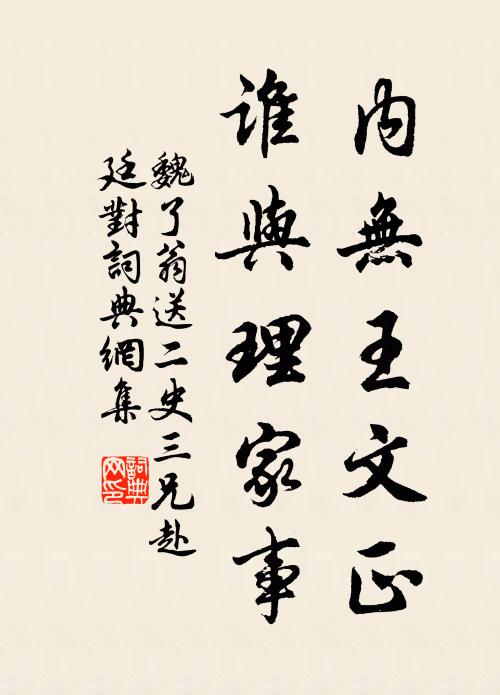 內無王文正
誰與理家事
魏了翁送二史三兄赴
廷對詞典網集
詞典网印